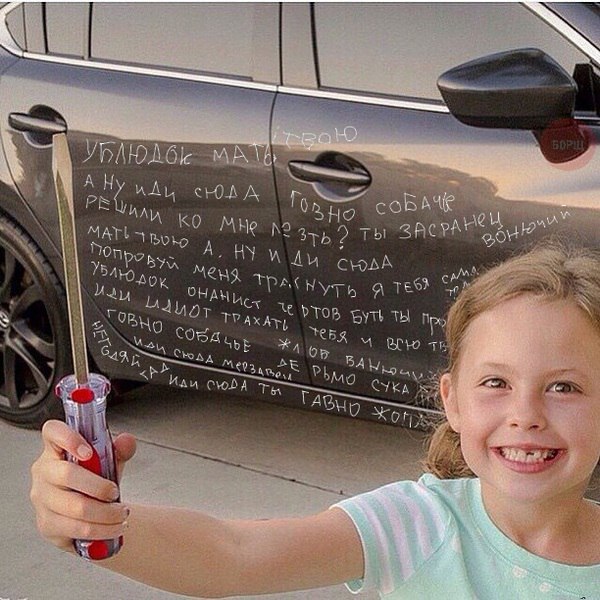 БОРЩ
УБЛЮДОК МАТЬ ТВОЮ
А НУ ИДИ СЮДА ГОВНО СОБАЧЬЕ
РЕШИЛИ КО МНЕ ЛЕЗТЬ? ТЫ ЗАСРАНЕЦ ВОНЮЧИЙ
МАТЬ ТВОЮ А. НУ ИДИ СЮДА
ПОПРОБУЙ МЕНЯ ТРАХНУТЬ Я ТЕБЯ САМ
УБЛЮДОК ОНАНИСТ ЧЕРТОВ БУТЬ ТЫ ПРО
ИДИ ИДИОТ ТРАХАТЬ ТЕБЯ И ВСЮ ТВ
ГОВНО СОБАЧЬЕ ЖЛОБ ВАНЮЧИ
НЕГОДЯЙ ГАД ИДИ СЮДА МЕРЗАВЕЦ ДЕРЬМО СУКА
ИДИ СЮДА ТЫ ГАВНО ЖОПА